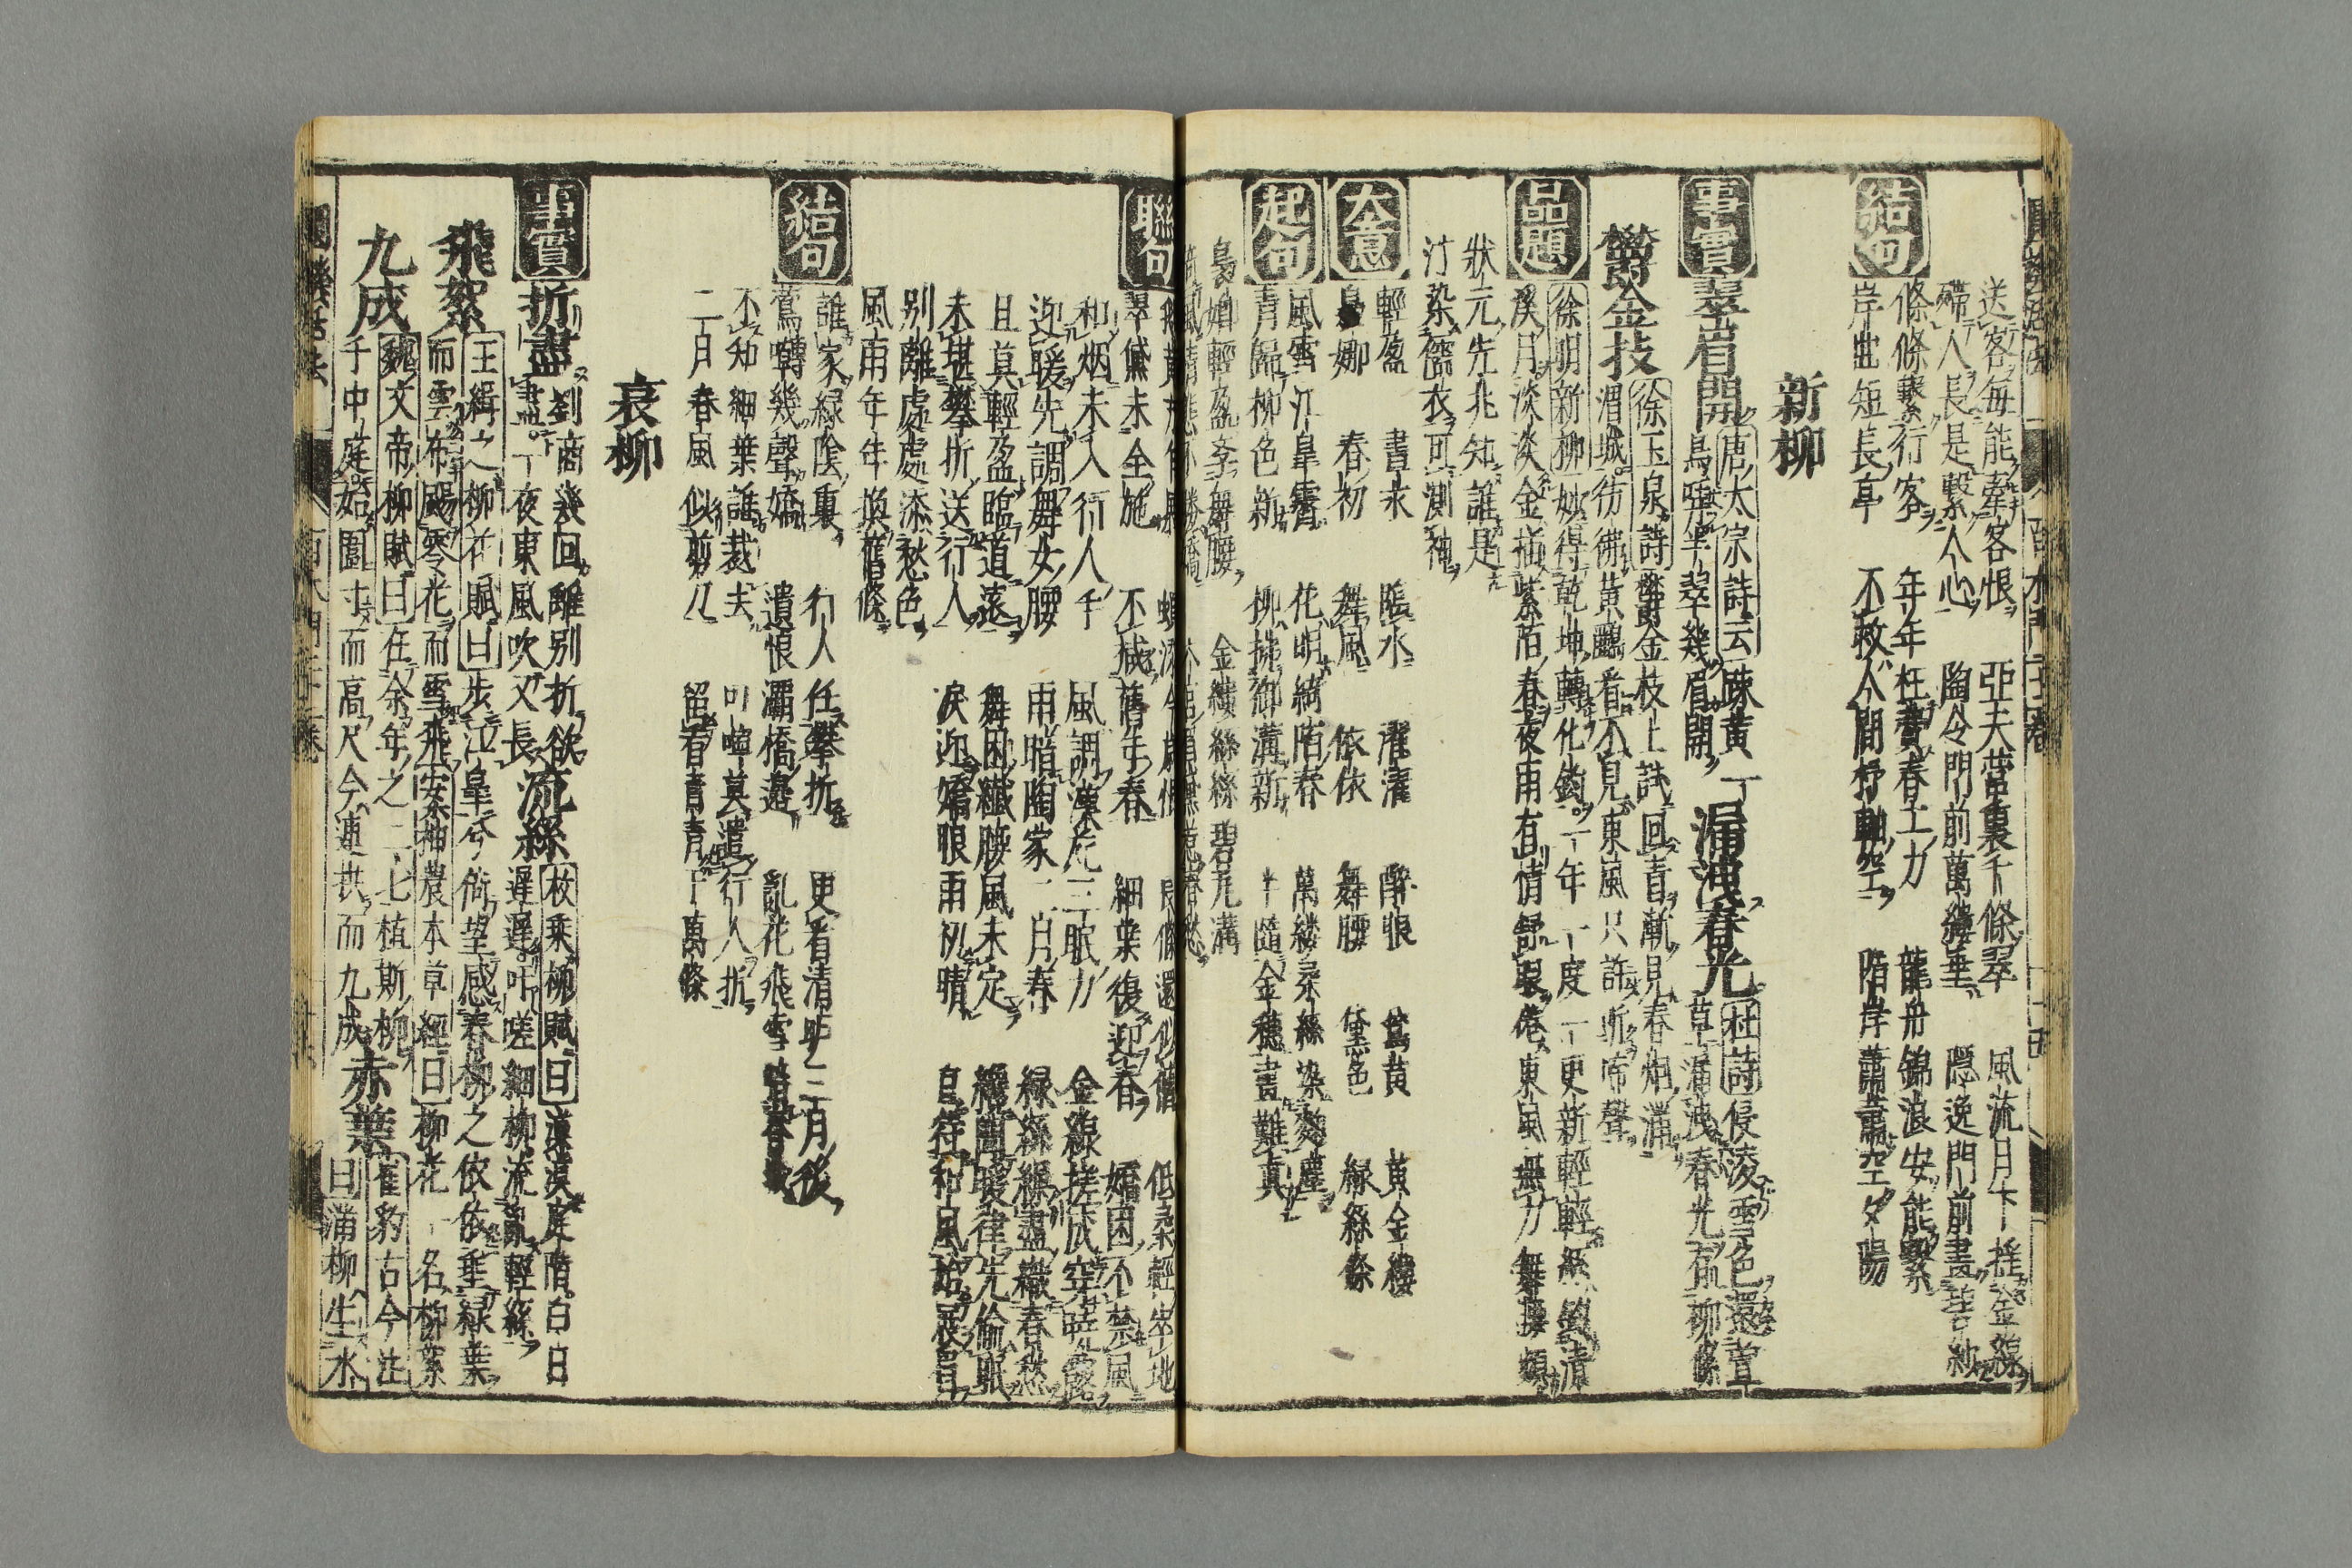 結句
送客每能牽客恨 亞夫營裏千條翠 風流月下搓金線
人長是繫人心 陶令門前萬縷垂 隱逸門前畫碧紗
條條繫行客 年年枉費春工力 龍舟錦浪安能繫
岸出短長亭 不救人間杼軸空 隋岸蕭蕭空夕陽
新柳
事實
翠眉開 唐太宗詩云 踈黃一
鳥弄半翠幾眉開
漏洩春光 杜詩 侵凌雪色還萱
草漏洩春光有柳條
欝金枝 徐玉泉詩 欝金枝上試回青漸見春烟滿
渭城彷彿黃鸝看不見東風只許聽啼聲
品題
徐明新柳 妙得乾坤轉化鈞一年一度一更新輕輕烟鎖清
溪月淡淡金描紫陌春夜雨有情舒眼倦東風無力舞腰頻
狀元先兆知誰是
汁染藍衣可測神
大意
輕盈 晝永 隔水 濯濯 醉眼 鶯黃 黃金縷
裊娜 春初 舞風 依依 舞腰 黛色 緑絲絛
起句
風雪江皐霽 花明綺陌春 萬縷柔絲染麴塵
青歸柳色新 柳拂御溝新 半隨金穗畫難真
裊娜輕盈學舞腰 金縷絲絲碧瓦溝
聯句
翠黛未全施 不減舊年春 細葉復迎春 嬌困不禁風
和烟未入行人手 風調漢苑三眠力 金線搓成穿曉露
迎暖先調舞女腰 雨暗陶家二月春 緑絲繰盡織春愁
且莫輕盈臨道遠 舞困纖腰風未定 纔聞暖律先偷眼
未堪攀折送行人 淚迎嬌眼雨初晴 旦待和風始展眉
别離處處添愁色
風雨年年換舊條
結句
誰家緑陰裏 行人任攀折 更看清明三月後
鶯囀幾聲嬌 遺恨灞橋邊 亂花飛雪暗春城
不知細葉誰裁去 叮嚀莫遣行人折
二月春風似剪刀 留看青青千萬條
衰柳
事實
折盡 劉商 幾回離別折欲
盡一夜東風吹又長
流絲 枚乘柳賦曰 漠漠庭階白日
遲遲吁嗟細柳流亂輕絲
飛絮 王緝之柳花賦曰 步江皐兮倚望感春柳之依依垂緑葉
而雲布颺零花而雪飛 安神農本草經曰 柳花一名柳絮
九成 魏文帝柳賦曰 在余年之二七植斯柳
于中庭始圍寸而高尺今連拱而九成
赤葉 崔豹古今注
曰 蒲柳生水